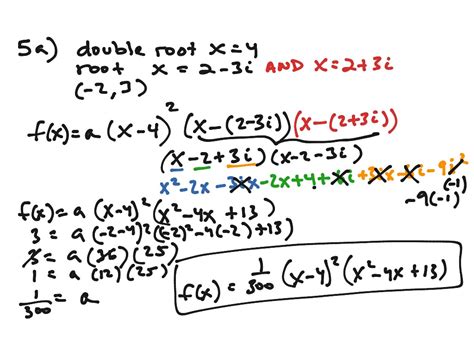 5a) double root x=4
root x = 2-3i AND x=2+3i
(-2, 3)
f(x)=a (x-4)² (x-(2-3i))(x-(2+3i))
(x-2+3i)(x-2-3i)
x²-2x-3ix-2x+4+6i+3ix-6i-9i²
(-1)
-9(-1)
f(x)=a (x-4)²(x²-4x+13)
3 = a(-2-4)²((-2)²-4(-2)+13)
3 = a (36)(25)
1 = a (12)(25)
1/300 = a
f(x) = 1/300 (x-4)² (x²-4x+13)